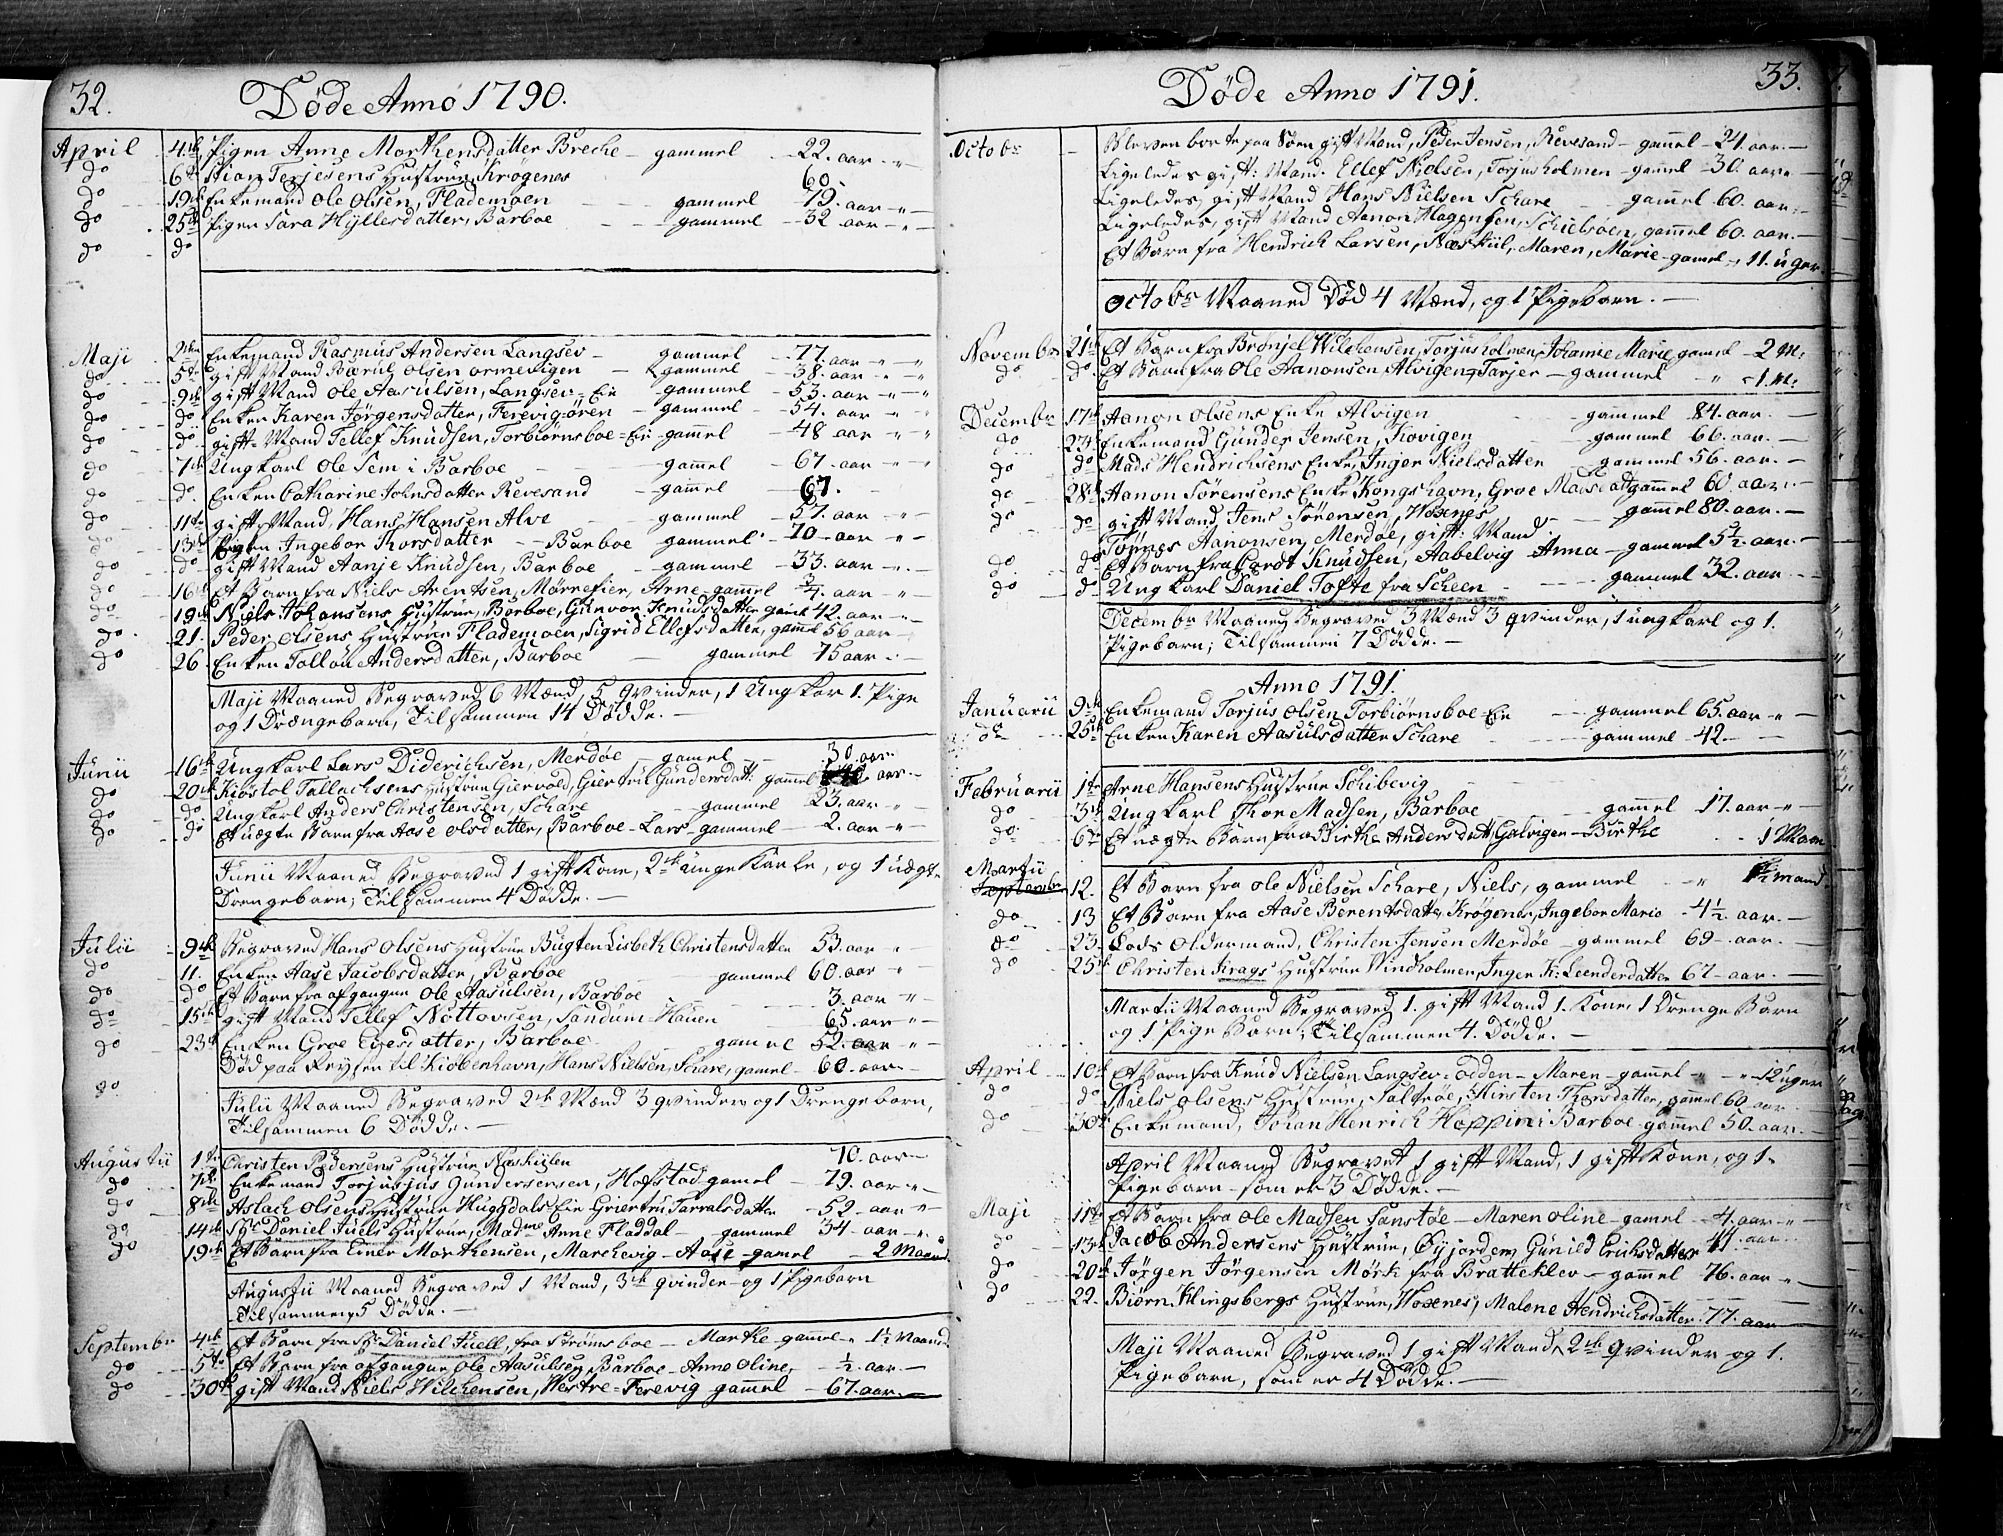 32.
Døde Anno 1790.
April 4de Pigen Anne Morthensdatter Breche - gammel - 22. aar.
do 6te Stian Terjesens Hustrue Krøgenes 60.
do 19de Enkemand Ole Olsen, Flademoen gammel 79. aar
do 25de Pigen Sara Hyllersdatter, Barboe gammel - 32 aar
do do
Maji 2den Enkemand Rasmus Andersen Langsev - gammel - 77. aar
do 5te gift Mand Bærul Olsen Ormevigen - gammel - 38. aar
do 9de gift Mand Ole Aasulsen, Langsev-Eie gammel - 53. aar
do do Enken Karen Jørgensdatter, Ferevigören - gammel - 54. aar
do do gift Mand Tellef Knudsen, Torbiørnsboe-Eie gammel - 48 aar
do 7de Ungkarl Ole Sem i Barboe - gammel - 67. aar
do do Enken Catharine Johnsdatter Revesand - gammel 67.
do 11te gift Mand, Hans Hansen Alve - gammel - 57. aar
do 13de Pigen Ingebor Thorsdatter - Barboe gammel - 70 - aar
do do gift Mand Aanje Knudsen, Barboe - gammel - 33. aar
do 16de Et Barn fra Niels Arentsen, Mørrefier, Arne gammel 3/4. aar
do 19de Niels Johansens Hustrue, Barboe, Gunvor Knudsdatter gamel 42. aar
do 21. Peder Olsens Hustrue Flademoen, Sigrid Ellefsdatter, gammel 56 aar
do 26 Enken Tollou Andersdatter, Barboe gammel 75 aar
Maji Maaned Begraved 6 Mænd, 5 qvinder, 1 Ungkar 1. Pige
og 1 Drængebarn, Tilsammen 14 Dødde. -
Junii 16de Ungkarl Lars Diderichsen, Merdøe - gamel - 30. aar
do 20de Kiøstol Tallachsens Hustrue Giervold, Giertrue Gundersdatt: gammel aar
do do Ungkarl Anders Christensen, Schare - gammel 23. aar
do do Et uægte Barn fra Aase Olsdatter, Barboe - Lars - gammel - 2. aar
Junii Maaned Begraved 1 gift Kone, 2de Unge Karle, og 1 uægte
Drengebarn, Tilsammen 4 Dødde. -
Julii 9de Begraved Hans Olsens Hustrue Bugten Lisbeth Christensdatter 53. aar
do 11. Enken Aase Jacobsdatter, Barboe gammel 60. aar
do do Et Barn fra afgangne Ole Aasulsen, Barboe 3. aar
do 15de gift Mand Tellef Nottovsen, Sandum-Hauen 65. aar
do 23de Enken Groe Egesdatter, Barboe gamel 52. aar
do Død paa Reysen til Kiøbenhavn, Hans Nielsen, Schare, gamel - 60. aar
Julii Maaned Begraved 2de Mænd 3 qvinder og 1 Drengebarn,
Tilsammen 6 Dødde. -
Augustii 1te Christen Pedersens Hustrue Naskiilen 70. aar
do 7de Enkemand Torjusjus Gundersersen, Hofstad gamel - 79. aar
do 8de Aslach Olsens Hustrue Hugsdals Eie Griertru Tarvalsdatter - 52 - aar
do 14de Sr Daniel Juels Hustrue, Madme Anne Fladdal - gammel 34 - aar
do 19de Et Barn fra Einer Morthensen, Marchevig - Aase - gamel - 2 Maand
Augustii Maaned Begraved 1 Mand, 3de qvinder og 1 Pigebarn
Tilsammen 5 Dødde. -
Septembr 4de Et Barn fra Sr Daniel Juell, fra Strømsboe - Marthe gamel - 1½ Maaned
do 5te Et Barn fra afgangne Ole Aasulsen Barboe - Anne Oline - ½ - aar
do 30te gift Mand Niels Wilchensen, Westre-Ferevig gammel - 67. aar
33.
Døde Anno 1791.
Octobr - Bleven borte paa Søen gift Mand, Peder Jensen, Revesand - gamel - 24. aar -
Ligeledes gift: Mand. Ellef Nielsen, Torjusholmen - gamel - 30. aar
Ligeledes, gift Mand Hans Nielsen Schare gamel 60. aar
Ligeledes, gift Mand Aanon Hagensen, Schielsøen, gammel 60. aar. -
Et Barn fra Hendrich Larsen, Næskiil, Maren, Marie - gamel - 11. uger
Octobr Maaned Død 4 Mænd, og 1 Pigebarn. -
Novembr 21de Et Barn fra Brønjel Wilchensen, Torjusholmen, Johanne Marie gamel - 2 M:
do do Et Barn fra Ole Aanonsen Alvigen, Tarjer - gammel - 1. M:
Decembr 17de Aanon Olsens Enke Alvigen gammel 84. aar
do 23de Enkemand Gunder Jensen, Kiovigen gammel 66. aar. -
do do Mads Hendrichsens Enke, Inger Nielsdatter gammel 56. aar. -
do 28de Aanon Sørensens Enke Kongshavn, Groe Madsdatt gammel 60. aar
do do gift Mand Jens Sørensen, Woxnes gammel 80. aar. -
Tønnes Aanonsen, Merdøe, gift: Mand
do do Et Barn fra Cordt Knudsen, Aabelvig - Anna - gammel 5½. aar. -
do do Ung karl Daniel Tofte fra Scheen - gammel 32. aar
Decembr Maaned Begraved 3 Mænd 3 qvinder, 1 ungkarl og 1.
Pigebarn; Tilsammen 7 Dødde. -
Anno 1791.
Januarii 9de Enkemand Torjus Olsen Torbiørnsboe-Eie - gammel 65. aar
do 25de Enken Karen Aasulsdatter Schare - gammel 42.
Februarii 1te Arne Hansens Hustrue Schibevig
do 3de Ungkarl Thor Madsen, Barboe gammel 17. aar
do 6te Et uægte Barn fra Birthe Andersdatt, Galvigen - Birthe 1 Maan
Martii
Septembr 12. Et Barn fra Ole Nielsen Schare, Niels, gammel ½ maand
do 13 Et Barn fra Aase Berentsdatter, Krøgenes, Ingebor Marie - 4½. aar. -
do 23. Lods Oldermand, Christen Jensen Merdøe - gammel 69 - aar
do 25de Christen Krags Hustrue Windholmen, Inger K: Leendersdatter 67 - aar. -
Martii Maaned Begraved 1. gift Mand 1. Kone, 1 Drenge Barn
og 1 Pige Barn, Tilsammen 4. Dødde. -
April 10de Et Barn fra Knud Nielsen Langsev-Odden - Maren - gammel - 12 uger
do do Niels Olsens Hustrue, Saltrøe, Kirsten Thorsdatter, gammel 60 aar
do 30te Enkemand, Johan Henrich Hoppim i Barboe gammel 50. aar. -
April Maaned Begravet 1 gift Mand, 1 gift Kone, og 1.
Pigebarn som er 3 Dødde. -
Maji 11te Et Barn fra Ole Madsen Sanstøe - Maren Oline - gamel - 4. aar
do 13de Jacob Andersens Hustrue, Øyjorden, Gunild Erichsdatter 44. aar
do 20de Jørgen Jørgensen Mörk fra Bratteklev - gammel 76. aar
do 22. Biørn Klingsbergs Hustrue, Woxnes, Malene Hendrichsdatter. 77. aar
Maji Maaned Begraved 1 gift Mand, 2de qvinder og 1.
Pigebarn, som er 4 Dødde. -